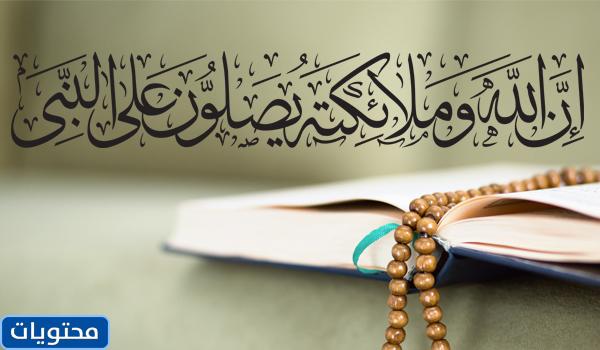 إِنَّ اللَّهَ وَمَلَائِكَتَهُ يُصَلُّونَ عَلَى النَّبِيِّ
محتويات